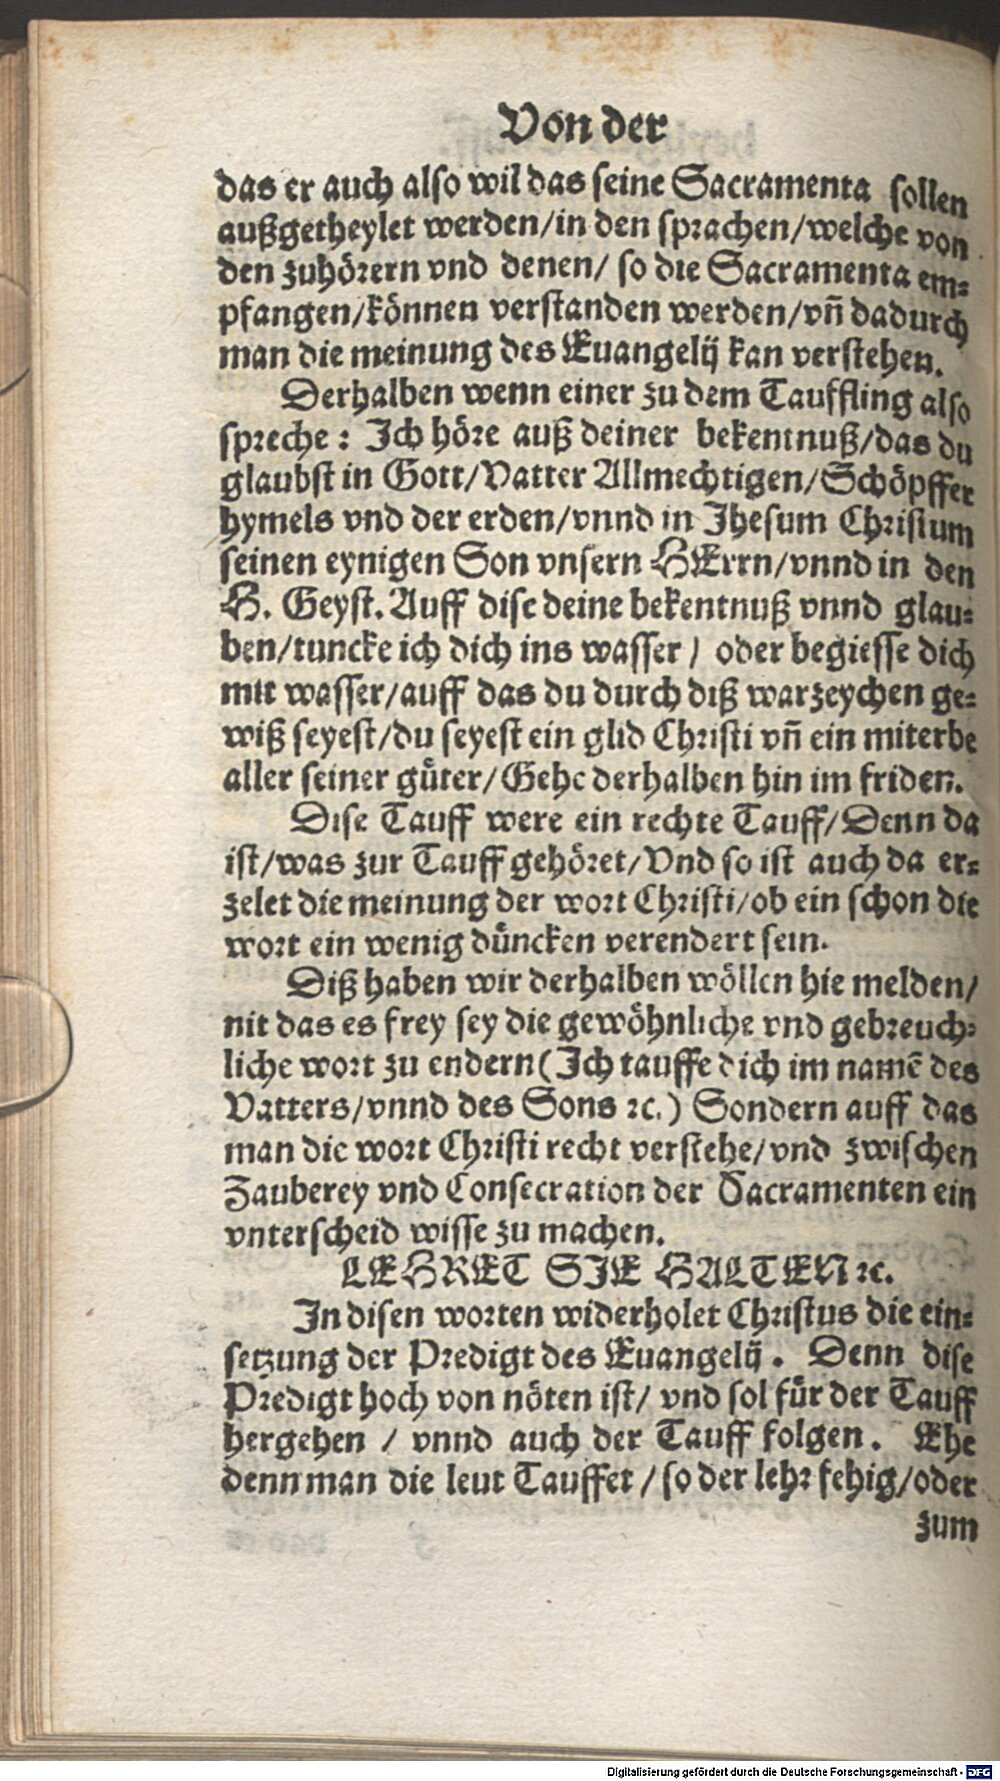 Von der
das er auch also wil das seine Sacramenta sollen
außgetheylet werden/in den sprachen/welche von
den zuhörern vnd denen/ so die Sacramenta em⸗
pfangen/können verstanden werden/vñ dadurch
man die meinung des Euangelij kan verstehen.
Derhalben wenn einer zu dem Tauffling also
spreche: Ich höre auß deiner bekentnuß/das du
glaubst in Gott/Vatter Allmechtigen/Schöpffer
hymels vnd der erden/vnnd in Jhesum Christum
seinen eynigen Son vnsern HErrn/vnnd in den
H. Geyst. Auff dise deine bekentnuß vnnd glau⸗
ben/tuncke ich dich ins wasser/ oder begiesse dich
mit wasser/auff das du durch diß warzeychen ge⸗
wiß seyest/du seyest ein glid Christi vñ ein miterbe
aller seiner güter/Gehe derhalben hin im friden.
Dise Tauff were ein rechte Tauff/Denn da
ist/was zur Tauff gehöret/Vnd so ist auch da er⸗
zelet die meinung der wort Christi/ob ein schon die
wort ein wenig düncken verendert sein.
Diß haben wir derhalben wöllen hie melden/
nit das es frey sey die gewöhnliche vnd gebreuch⸗
liche wort zu endern(Ich tauffe dich im namē des
Vatters/vnnd des Sons ꝛc.) Sondern auff das
man die wort Christi recht verstehe/vnd zwischen
Zauberey vnd Consecration der Sacramenten ein
vnterscheid wisse zu machen.
LEHRET SIE HALTEN ꝛc.
In disen worten widerholet Christus die ein⸗
setzung der Predigt des Euangelij. Denn dise
Predigt hoch von nöten ist/ vnd sol für der Tauff
hergehen / vnnd auch der Tauff folgen. Ehe
denn man die leut Tauffet/so der lehr fehig/oder
zum
Digitalisierung gefördert durch die Deutsche Forschungsgemeinschaft - DFG